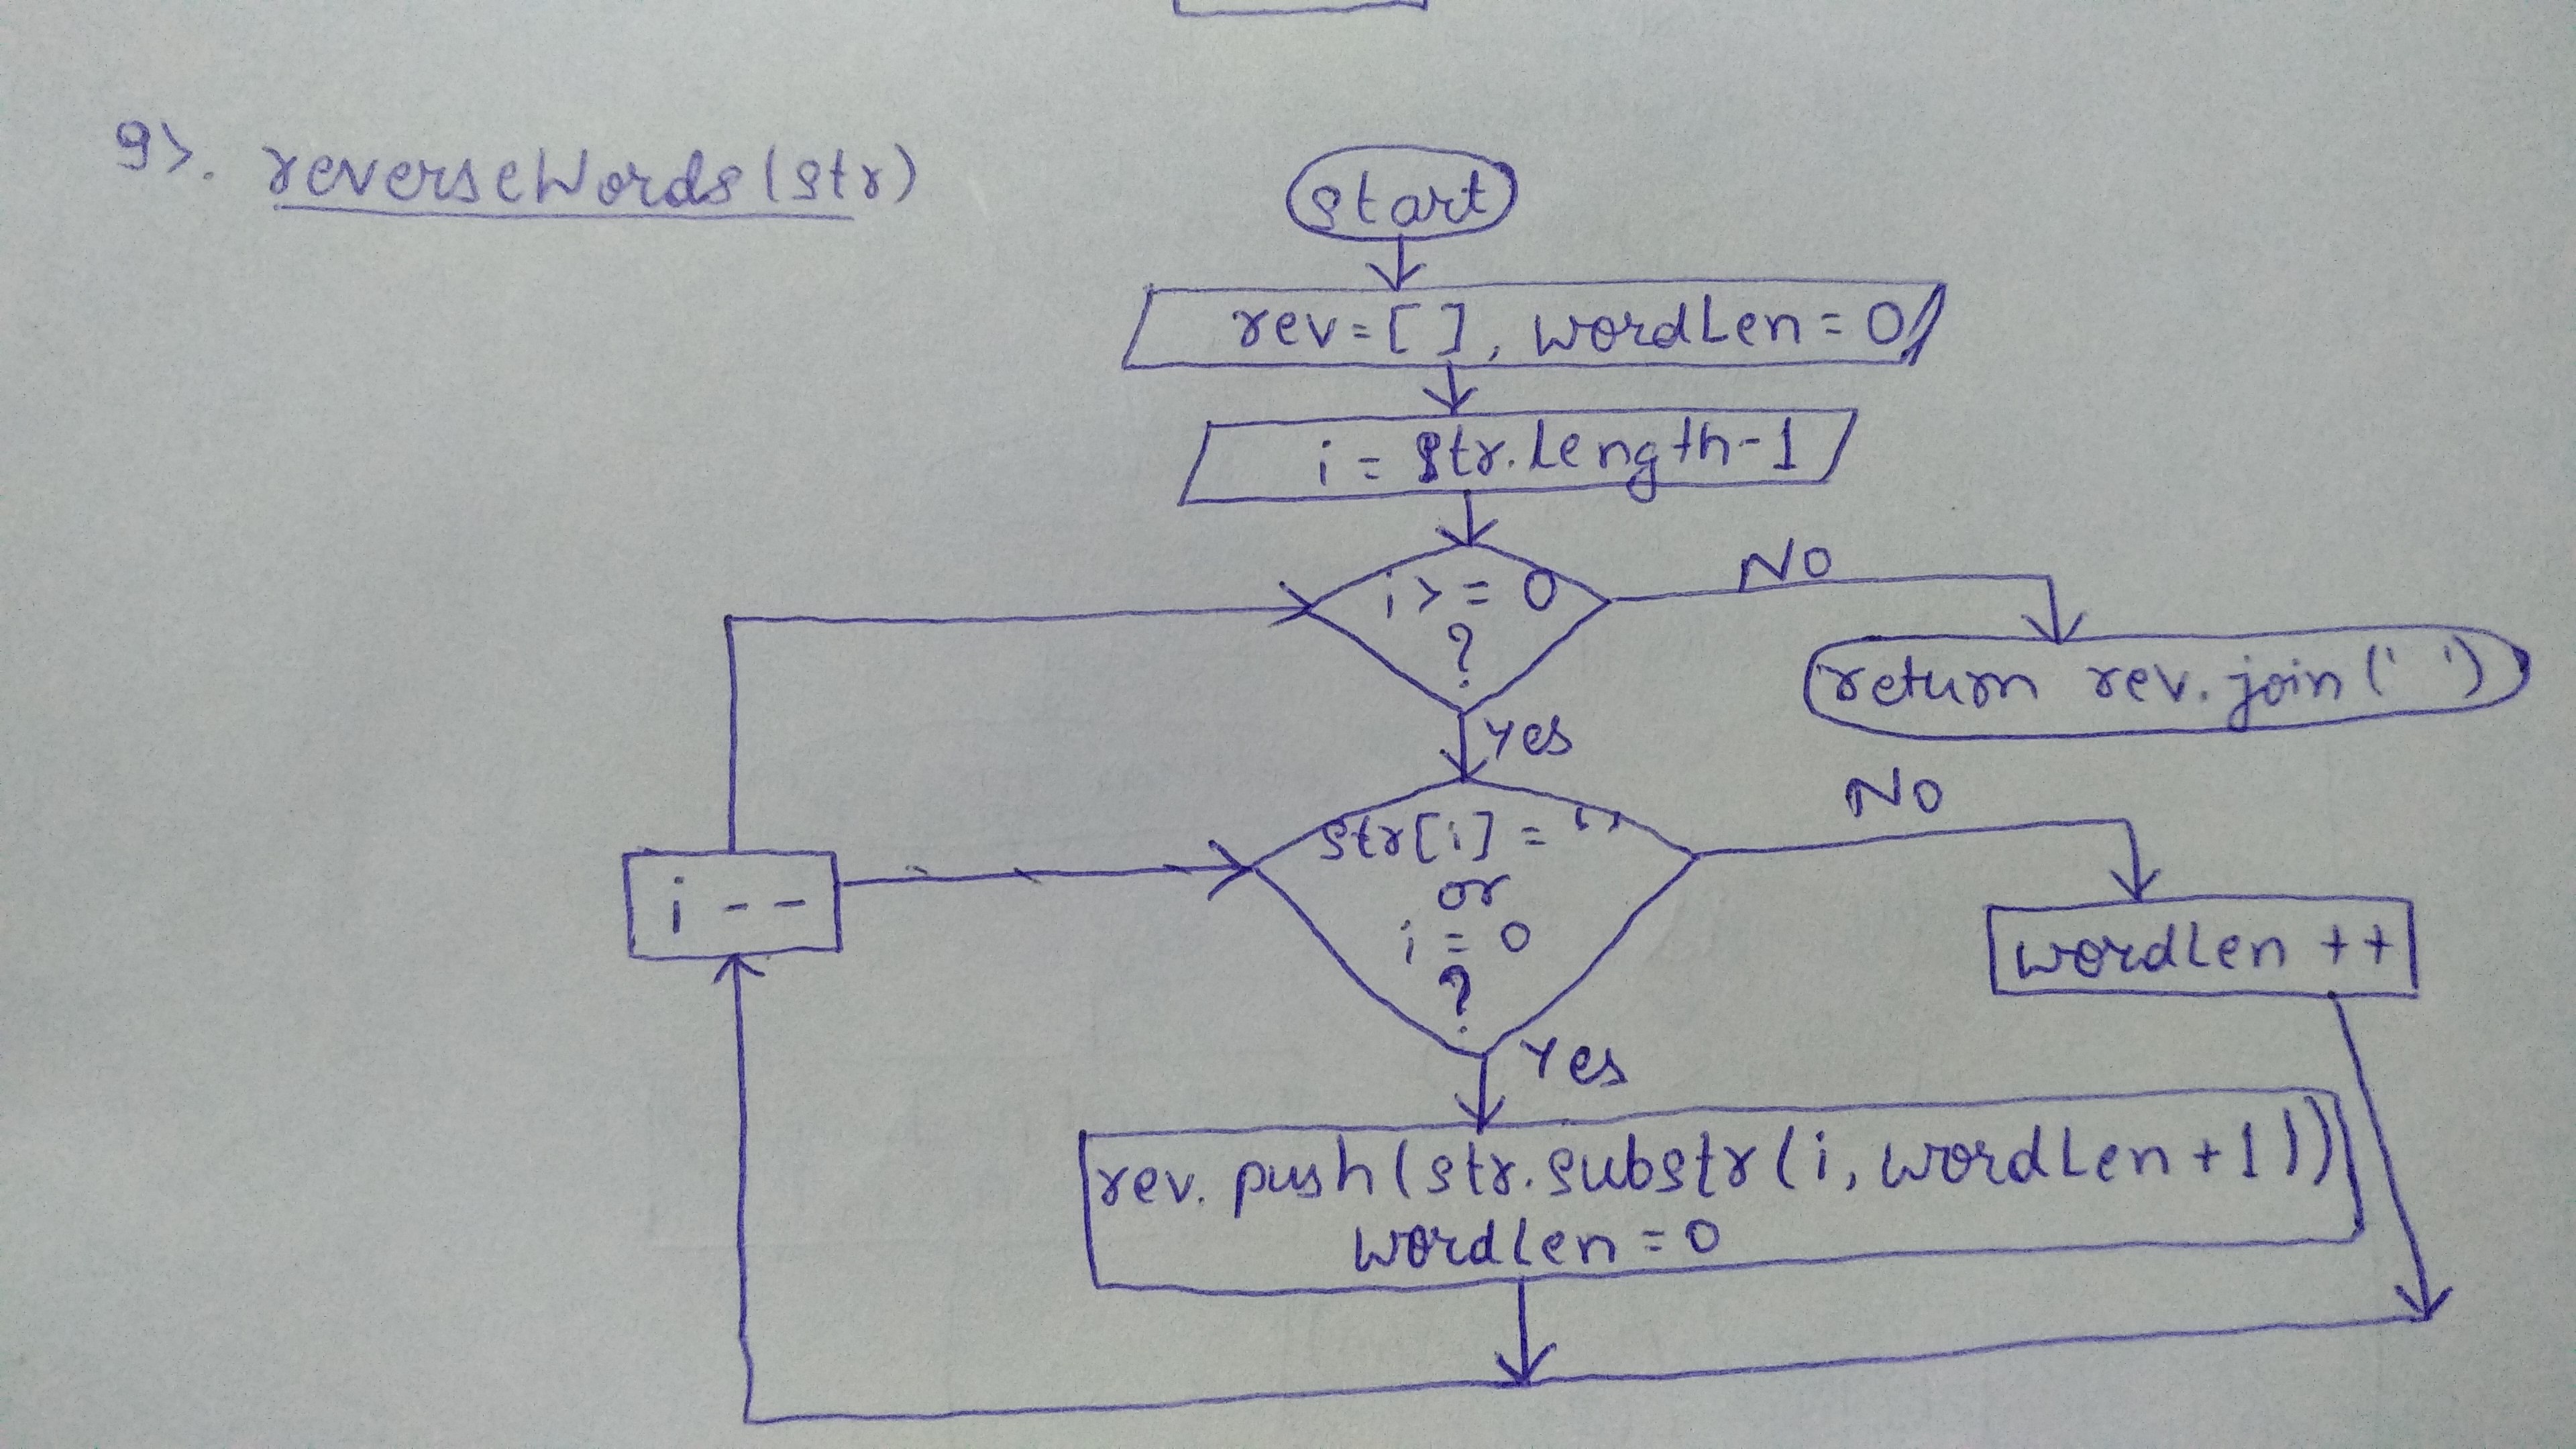 9>. reverseWords(str)
start
rev=[], wordLen=0
i=str.length-1
i>=0
?
NO
return rev.join(' ')
Yes
str[i]=' '
or
i=0
?
NO
wordLen++
i--
Yes
rev.push(str.substr(i, wordLen+1))
wordLen=0